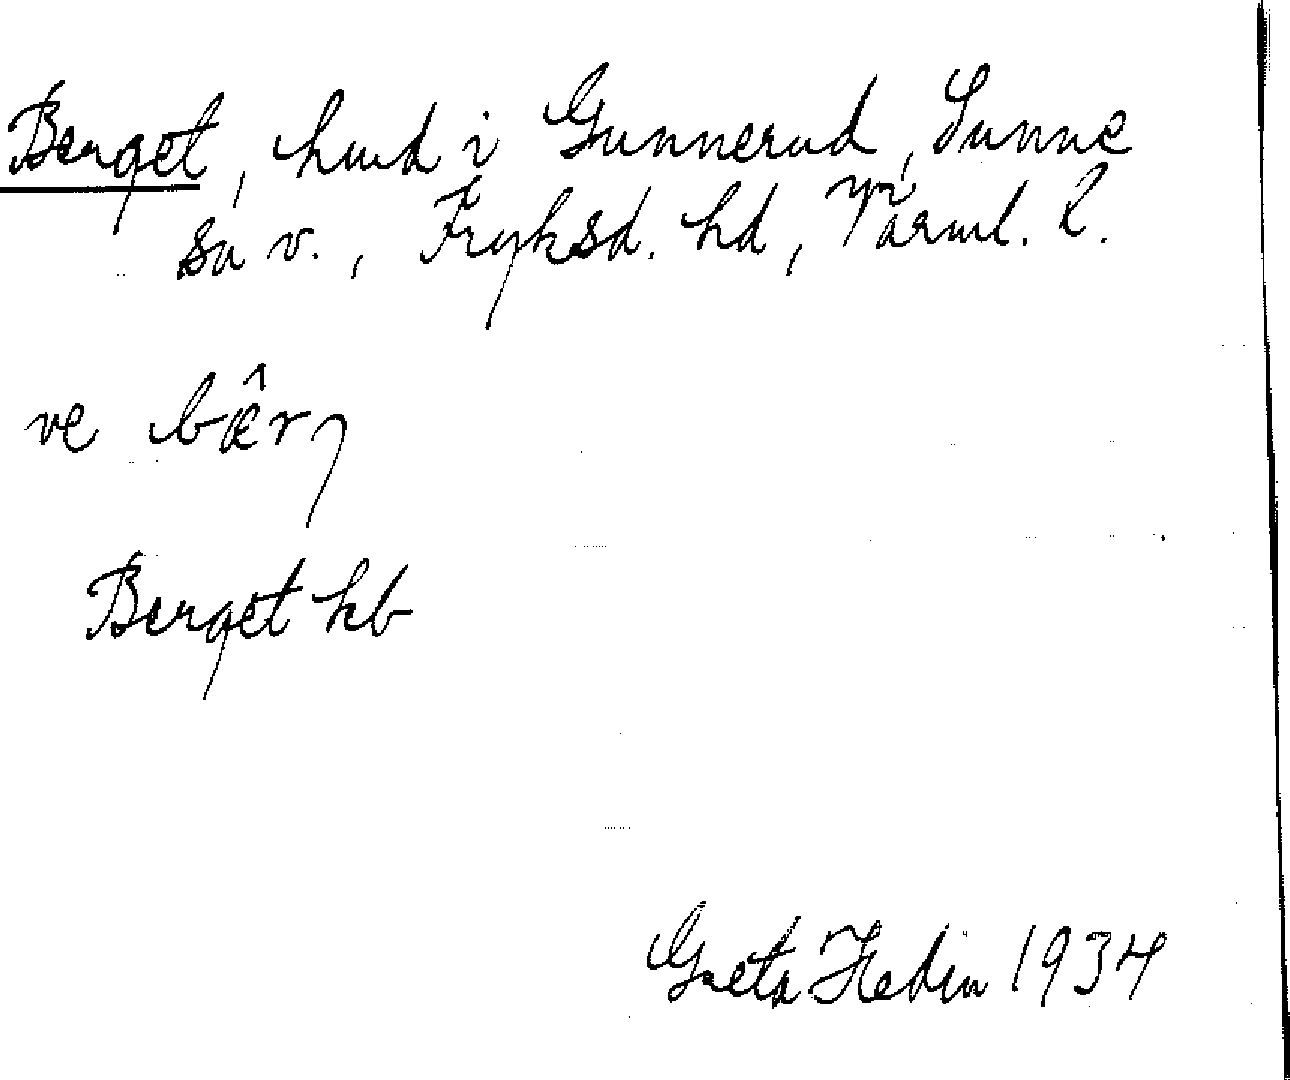 Berget, hmd i Gunnerud, Sunne
sn v., Fryksd. hd, Värml. l.
ve bærj
Berget hb
Greta Hedin 1934